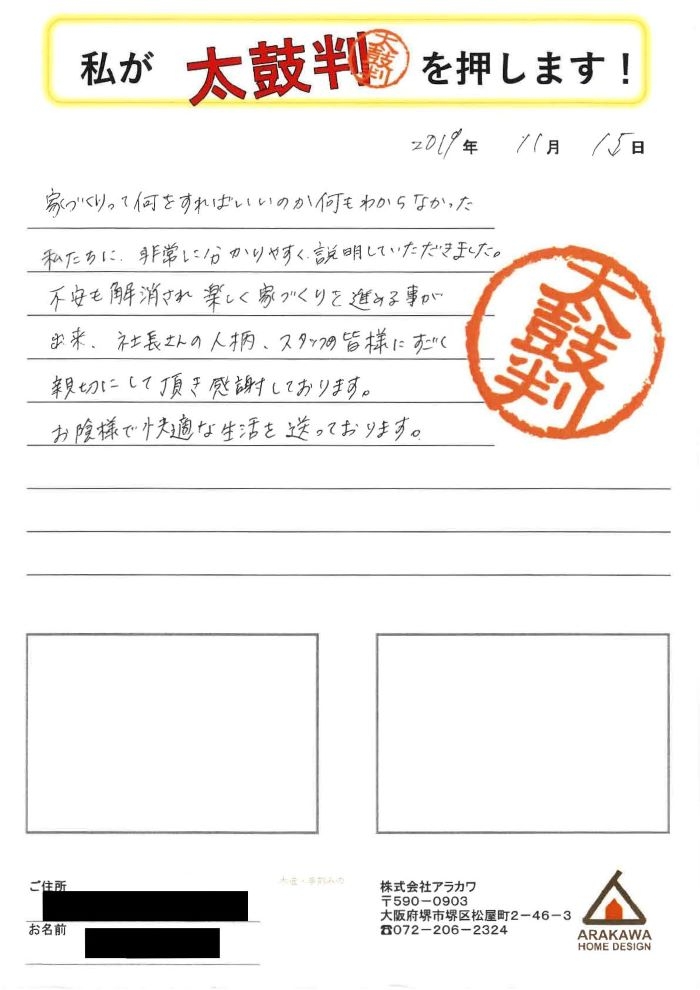 私が 太鼓判 太鼓判 を押します！
2019年 11月 15日
家づくりって何をすればいいのか何もわからなかった
私たちに、非常に分かりやすく説明していただきました。
不安も解消され楽しく家づくりを進める事が
出来、社長さんの人柄、スタッフの皆様にすごく
親切にして頂き感謝しております。
お陰様で快適な生活を送っております。
太鼓判
ご住所
お名前
株式会社アラカワ
〒590－0903
大阪府堺市堺区松屋町2－46－3
☎072－206－2324
ARAKAWA
HOME DESIGN